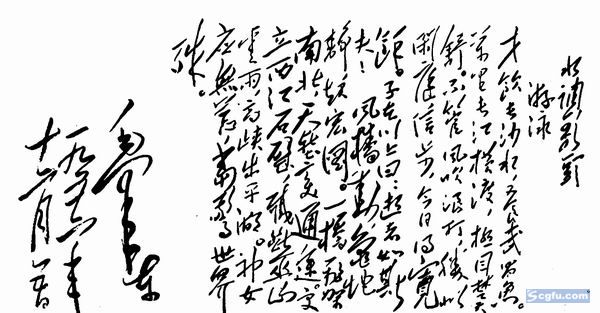 水調歌头
游泳
才飲长沙水，又食武昌魚。
萬里长江横渡，極目楚天
舒。不管風吹浪打，勝似
闲庭信步，今日得寬
馀。子在川上曰：逝者如斯
夫！風樯動，龜蛇
静，起宏圖。一橋飛架
南北，天塹变通途。更
立西江石壁，截断巫山
雲雨，高峡出平湖。神女
应無恙，当驚世界
殊。
毛泽东
一九五六年
十二月五日
Scgfu.com